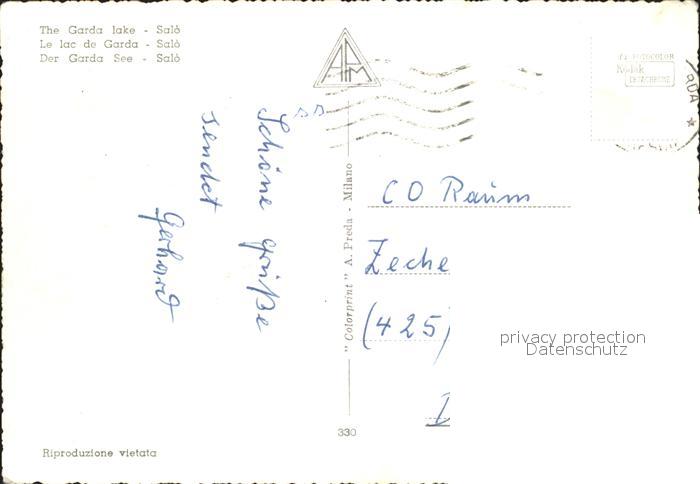 The Garda lake - Salò
Le lac de Garda - Salò
Der Garda See - Salò
APM
EKTACHROME
Kodak
Schöne grüße
sendet
Gerhard
" Colorprint " A. Preda - Milano
CO Raum
Zeche
(425)
I
privacy protection
Datenschutz
330
Riproduzione vietata